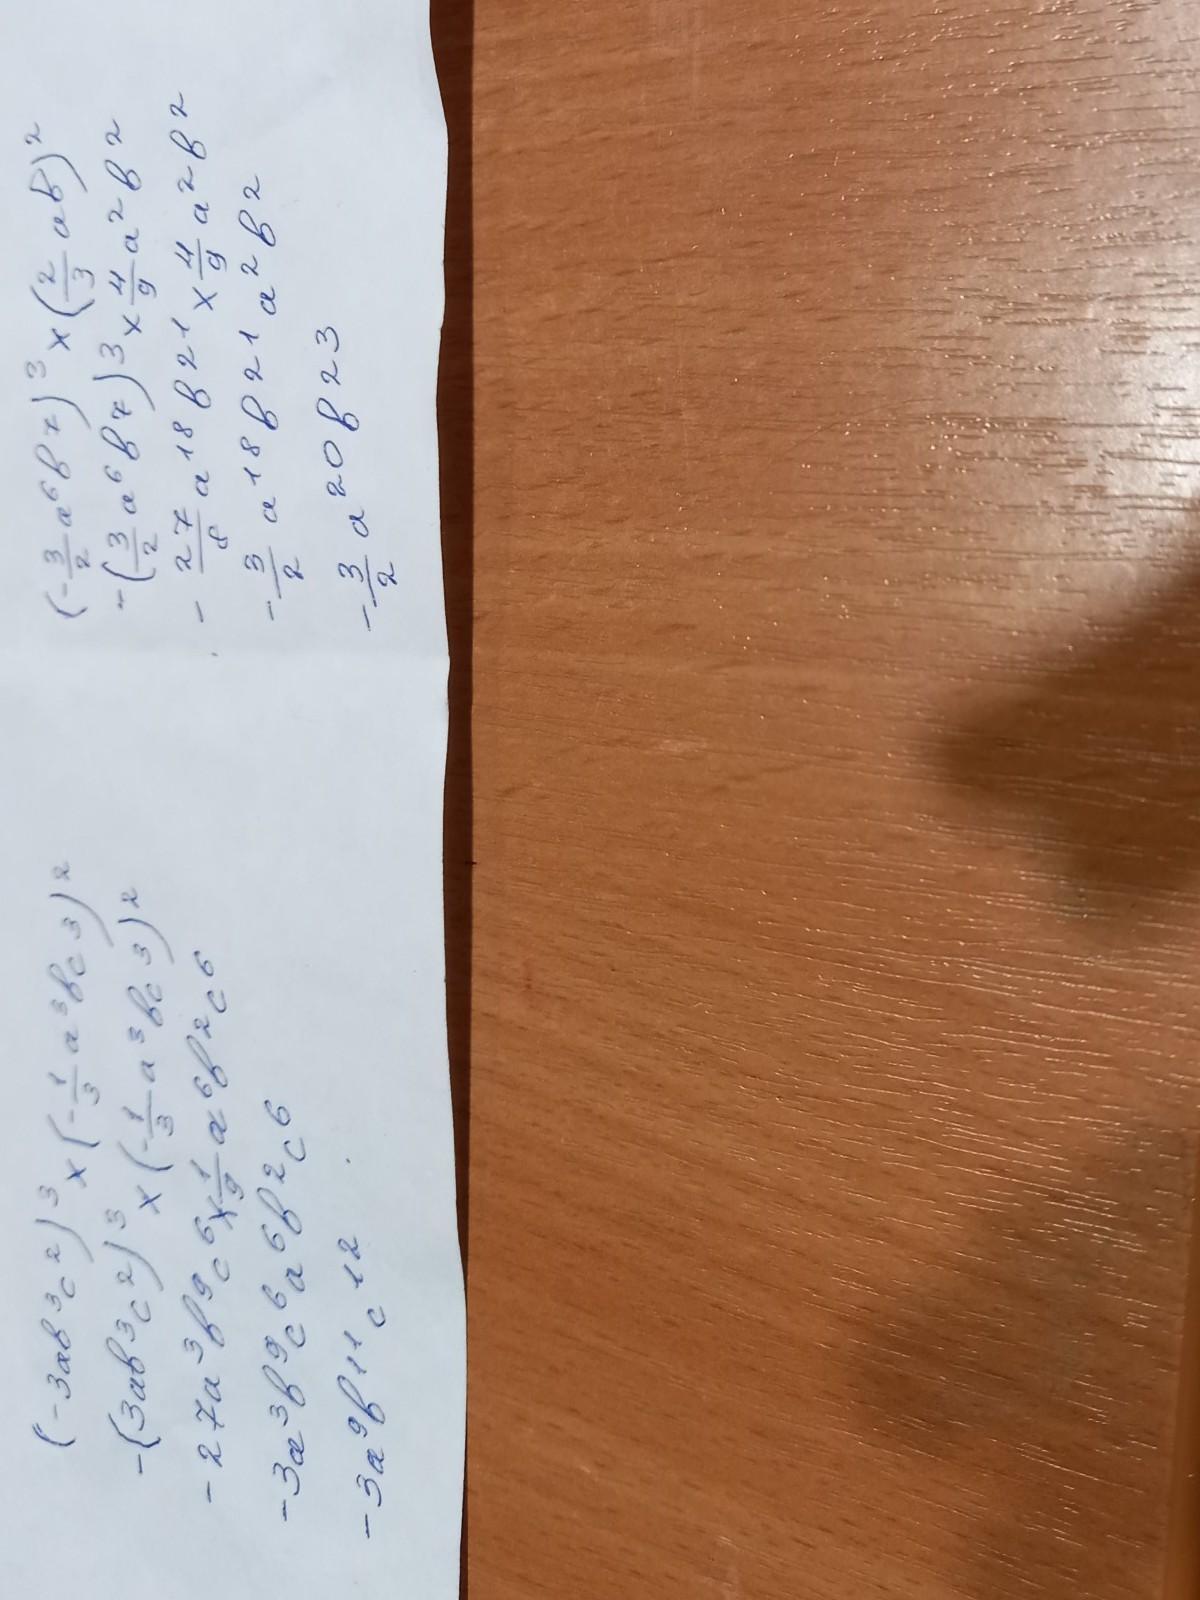 (-3ab³c²)³ × (-1/3 a³bc³)²
-(3ab³c²)³ × (-1/3 a³bc³)²
-27a³b⁹c⁶ × 1/9 a⁶b²c⁶
-3a³b⁹c⁶a⁶b²c⁶
-3a⁹b¹¹c¹²
(-3/2 a⁶b⁷)³ × (2/3 ab)²
-(3/2 a⁶b⁷)³ × 4/9 a²b²
-27/8 a¹⁸b²¹ × 4/9 a²b²
-3/2 a¹⁸b²¹a²b²
-3/2 a²⁰b²³